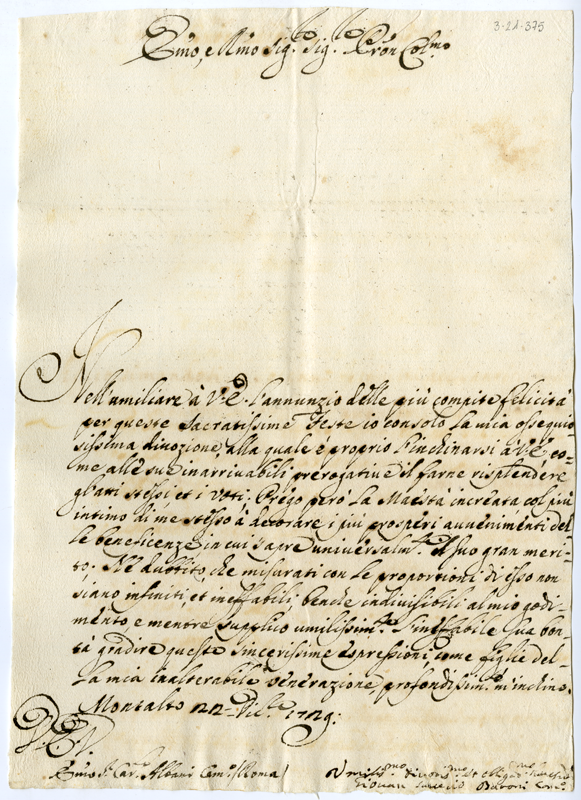 3-21-375
Emo, e Rmo Sig.re Sig.re Pron Colmo
Nell'umiliare à V.E. l'annunzio delle più compite felicità
per queste Sacratissime Feste io consolo la mia ossequio=
sissima divozione, alla quale è proprio l'inchinarsi à V.E. co=
me alle sue inarrivabili prerogative il farne risplendere
gl'atti stessi et i voti. Prego però la Maestà increata col più
intimo di me stesso à decorare i più prosperi avvenimenti del=
le beneficenze in cui s'apre universalm.te il suo gran meri=
to. Nè dubbito che misurati con le proportioni di esso non
siano infiniti, et ineffabili, benche indivisibili al mio godi=
mento e mentre supplico umilissim.te l'ineffabile sua bon=
tà gradire queste sincerissime espressioni, come figlie del=
la mia inalterabile venerazione profondissim.e m'inchino.
Montalto 22 Dic.re 1729:
D. V. E.
Emo S. Car. Albani Cam.o (Roma)
Umilis.mo Divotis.mo et obligat.mo
Giovan